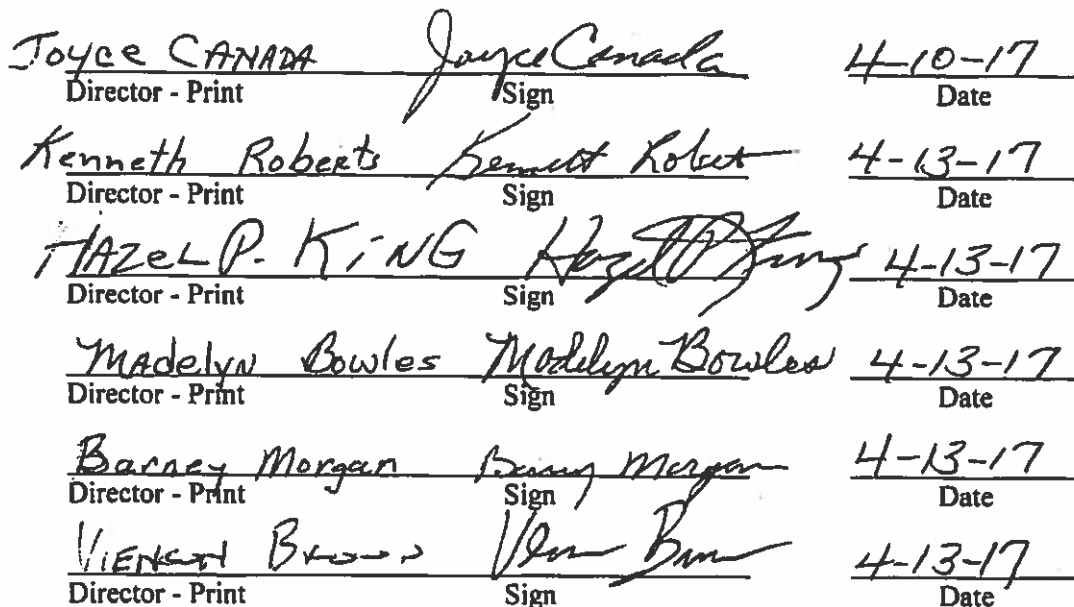 Joyce CANADA Joyce Canada 4-10-17
Director - Print Sign Date
Kenneth Roberts Kennett Robert 4-13-17
Director - Print Sign Date
HAZeL P. KiNG Hazel P King 4-13-17
Director - Print Sign Date
MAdelyN Bowles Madelyn Bowles 4-13-17
Director - Print Sign Date
Barney Morgan Barney Morgan 4-13-17
Director - Print Sign Date
4-13-17
Director - Print Sign Date